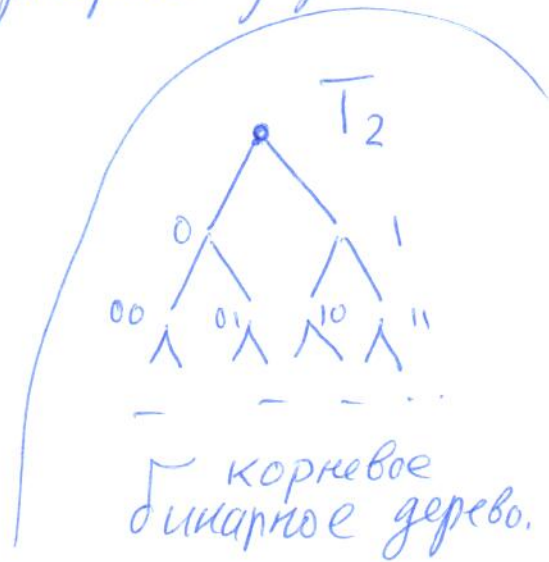 T₂
0 1
00 01 10 11
корневое
бинарное дерево.